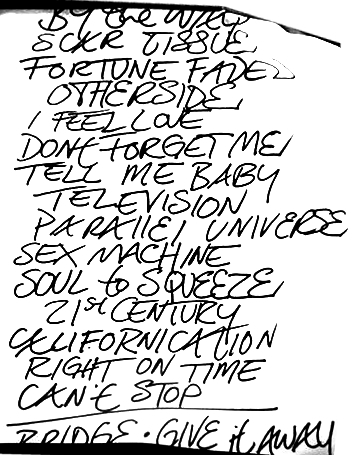 By the WAY
SCAR TISSUE
FORTUNE FADED
OTHERSIDE
I FEEL LOVE
DON'T FORGET ME
TELL ME BABY
TELEVISION
PARALLEL UNIVERSE
SEX MACHINE
SOUL to SQUEEZE
21st CENTURY
CALIFORNICATION
RIGHT ON TIME
CAN'T STOP
BRIDGE • GIVE it AWAY